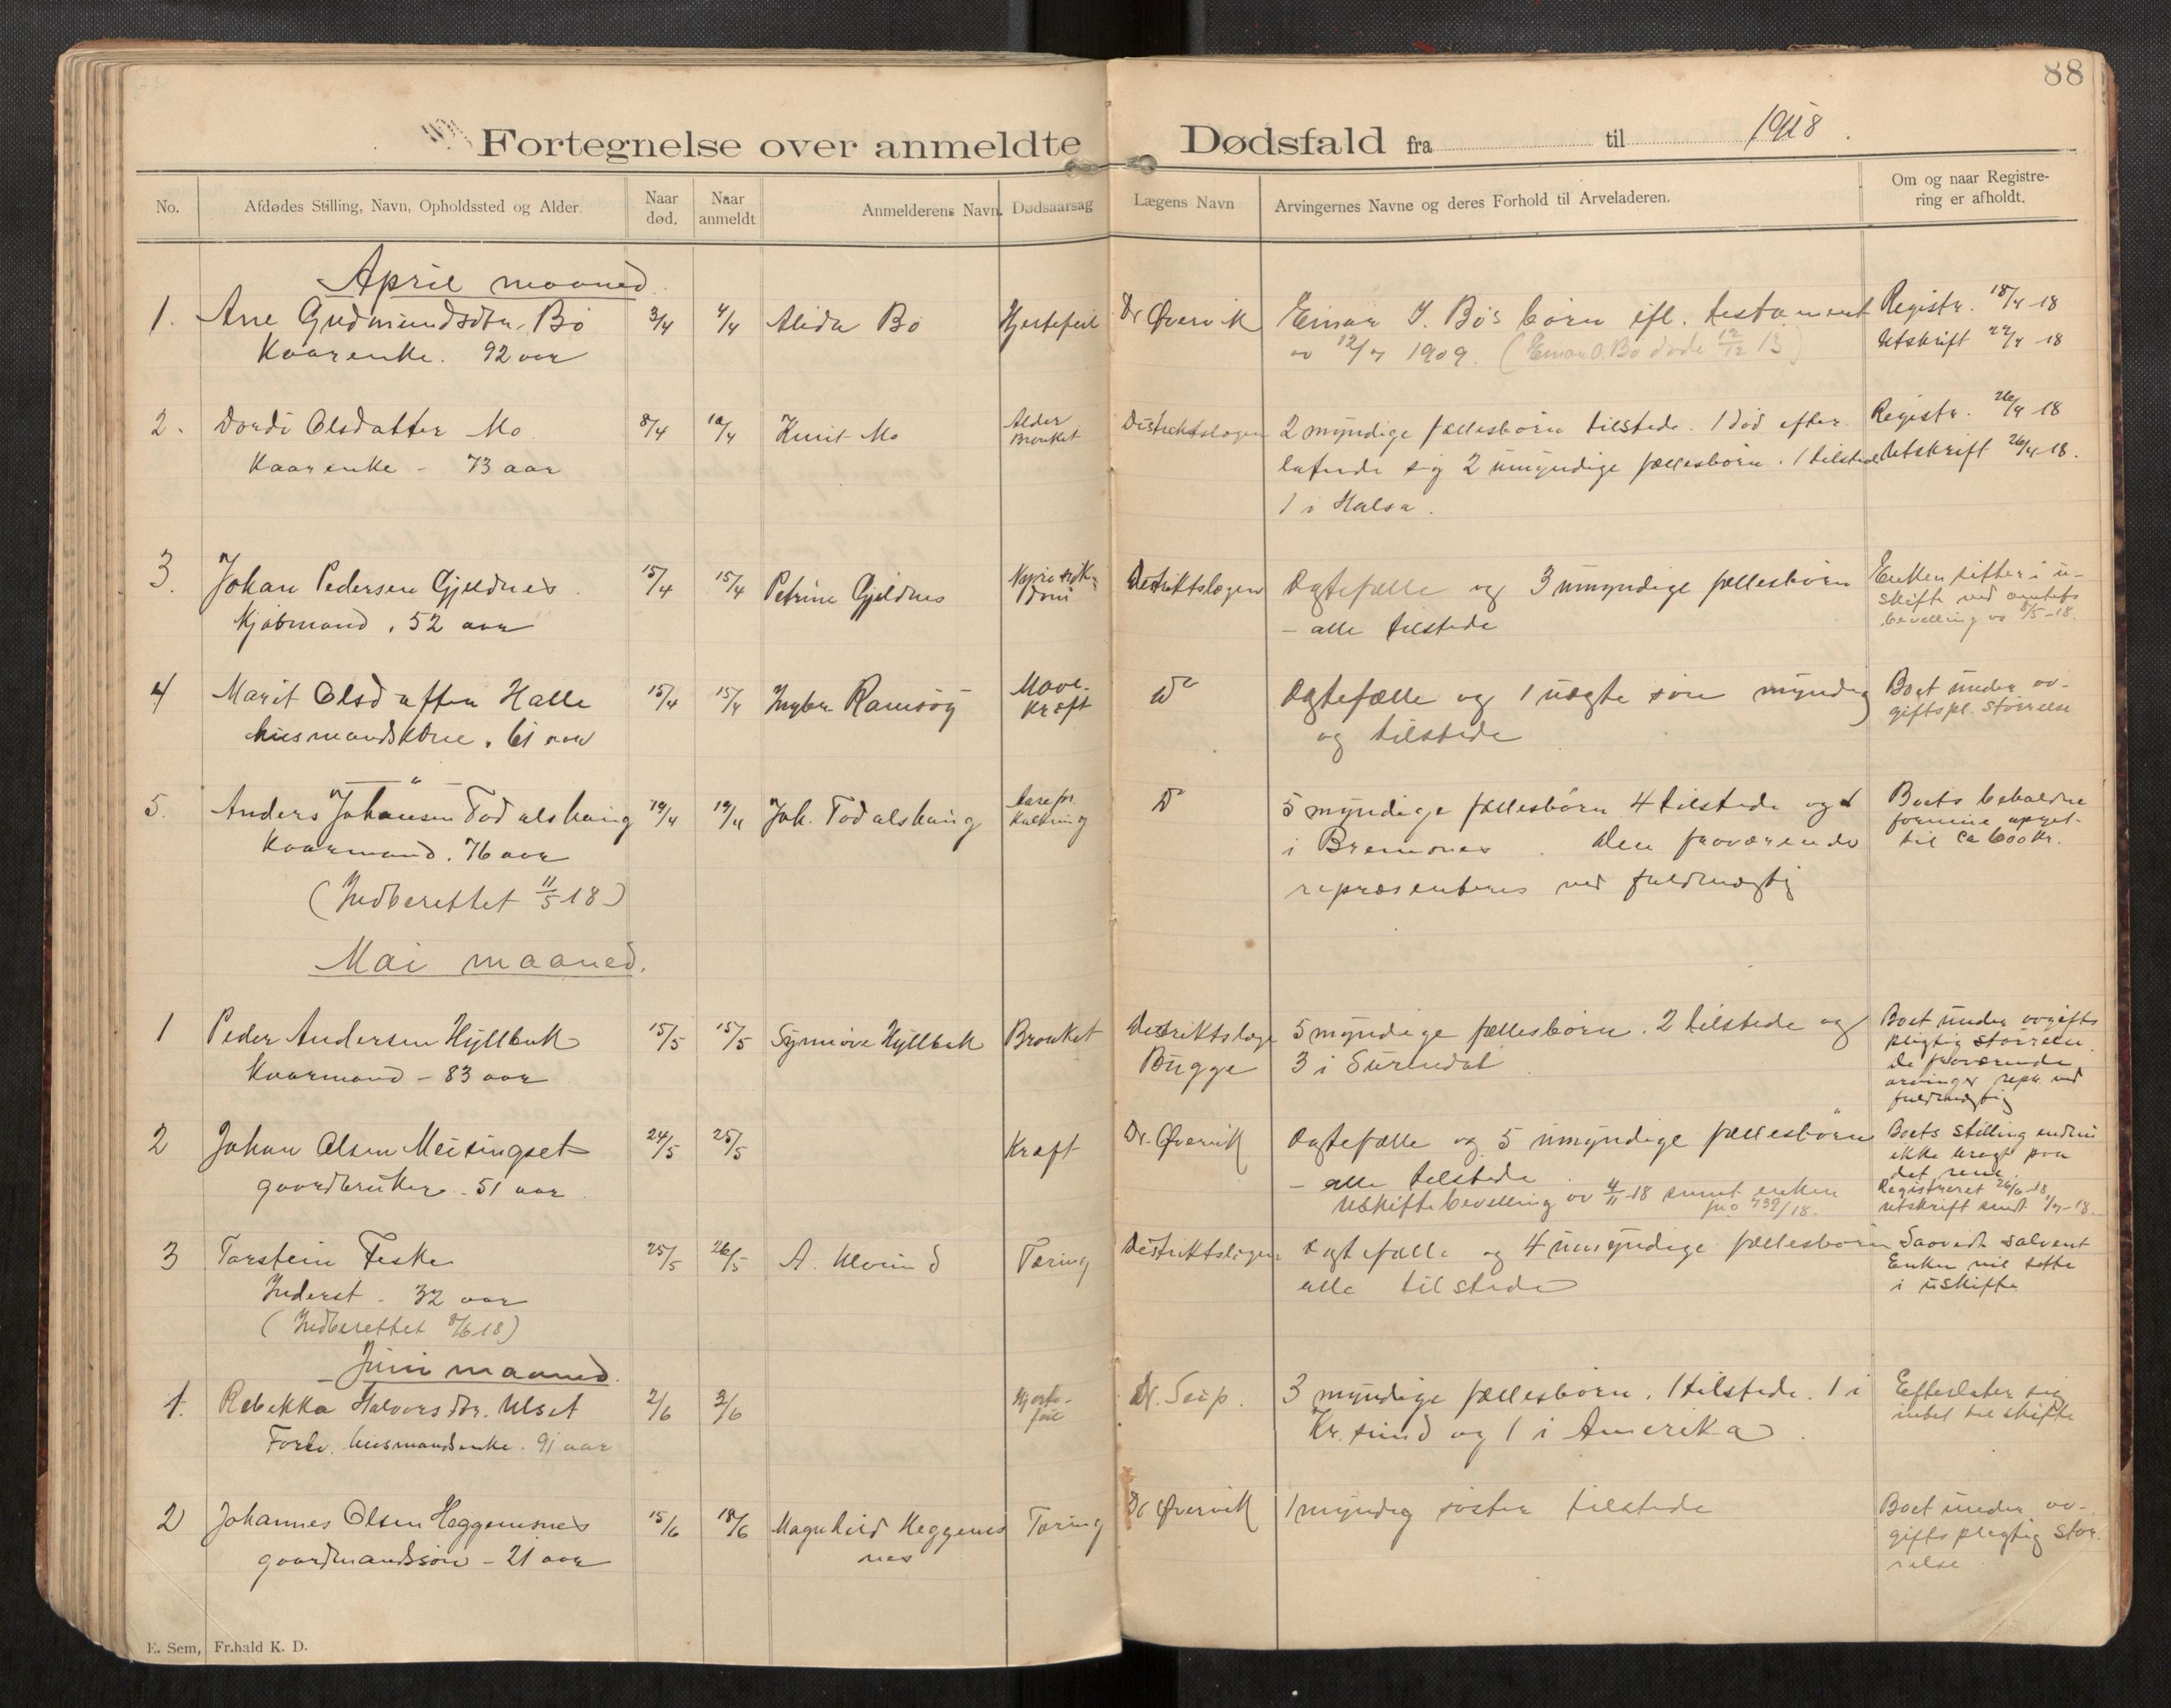 88
Fortegnelse over anmeldte Dødsfald fra til 1918.
No. Afdødes Stilling, Navn, Opholdssted og Alder. Naar død. Naar anmeldt Anmelderens Navn. Dødsaarsag Lægens Navn Arvingernes Navne og deres Forhold til Arveladeren. Om og naar Registrering er afholdt.
April maaned.
1. Ane Gudmundsdtr. Bö 3/4 4/4 Alida Bö Hjertefeil Dr Øvervik Einar J. Bös börn ifl. testament Registr. 18/4-18
Kaarenke. 92 aar av 12/7 1909. (Einar O. Bö döde 12/12 13) Utskrift 27/4 -18
2. Dordi Olsdatter Mo 8/4 10/4 Knut Mo Alder Distriktslægen 2 myndige fællesbörn tilstede. 1 död efter Registr. 26/4 -18
Kaarenke - 73 aar Bronkit latende sig 2 umyndige fællesbörn. 1 tilstede Utskrift 26/4-18.
1 i Halsa.
3. Johan Pedersen Gjeldnes. 15/4 15/4 Petrine Gjeldnes Distriktslægen Ægtefælle og 3 umyndige fællesbörn Enken sitter i u-
Kjöbmand. 52 aar - alle tilstede skifte ved amtets
bevilling av 8/5-18.
4 Marit Olsdatter Halle 15/4 15/4 Ingbr. Ramsöy Mave- Do Ægtefælle og 1 uægte sön myndig Boet under av-
husmandskone. 61 aar kræft og tilstede giftspl. störrelse
5. Anders Johansen Todalshaug 19/4 19/4 Joh. Todalshaug Aarefor- Do 5 myndige fællesbörn 4 tilstede og 1 Boets beholdne
Kaarmand. 76 aar kalkning i Bremsnes. Den fraværende formue opgit
til ca 600 kr.
(Indberettet 11/5 18) repræsenteres ved fuldmægtig
Mai maaned.
1 Peder Andersen Hyllbak 15/5 15/5 Synnöve Hyllbak Bronkit Distriktslæge 5 myndige fællesbörn. 2 tilstede og Boet under avgifts
Kaarmand - 83 aar Bugge 3 i Surendal pligtig störrelse.
De fraværende
arvinger repr. ved
fuldmægtig
2 Johan Olsen Meisingset 24/5 25/5 Kræft Dr. Øvervik Ægtefælle og 5 umyndige fællesbörn Boets stilling endnu
gaardbruker - 51 aar - alle tilstede. ikke bragt paa
det rene.
Uskiftebevilling av 4/11-18 sendt enken Registreret 26/6-18
jno 739/18. Utskrift sendt 1/7-18.
3 Torstein Feske 25/5 26/5 A. Ulvund Tæring Distriktslægen Ægtefælle og 4 umyndige fællesbörn Saavidt solvent
Inderst - 32 aar alle tilstede Enken vil sitte
(Indberettet 8/6 18) i uskifte
Juni maaned.
1. Rebekka Halvorsdtr. Ulset 2/6 3/6 Hjerte- Dr. Seip. 3 myndige fællesbörn. 1 tilstede. 1 i Efterlater sig
Forhv. husmandsenke. 91 aar feil Kr.sund og 1 i Amerika. intet til skifte
2 Johannes Olsen Heggemsnes 15/6 18/6 Magnhild Heggems Tæring Dr Øvervik 1 myndig söster tilstede Boet under av-
gaardmandssön - 21 aar nes gifts pligtig stör-
relse.
E. Sem, Fr.hald K. D.